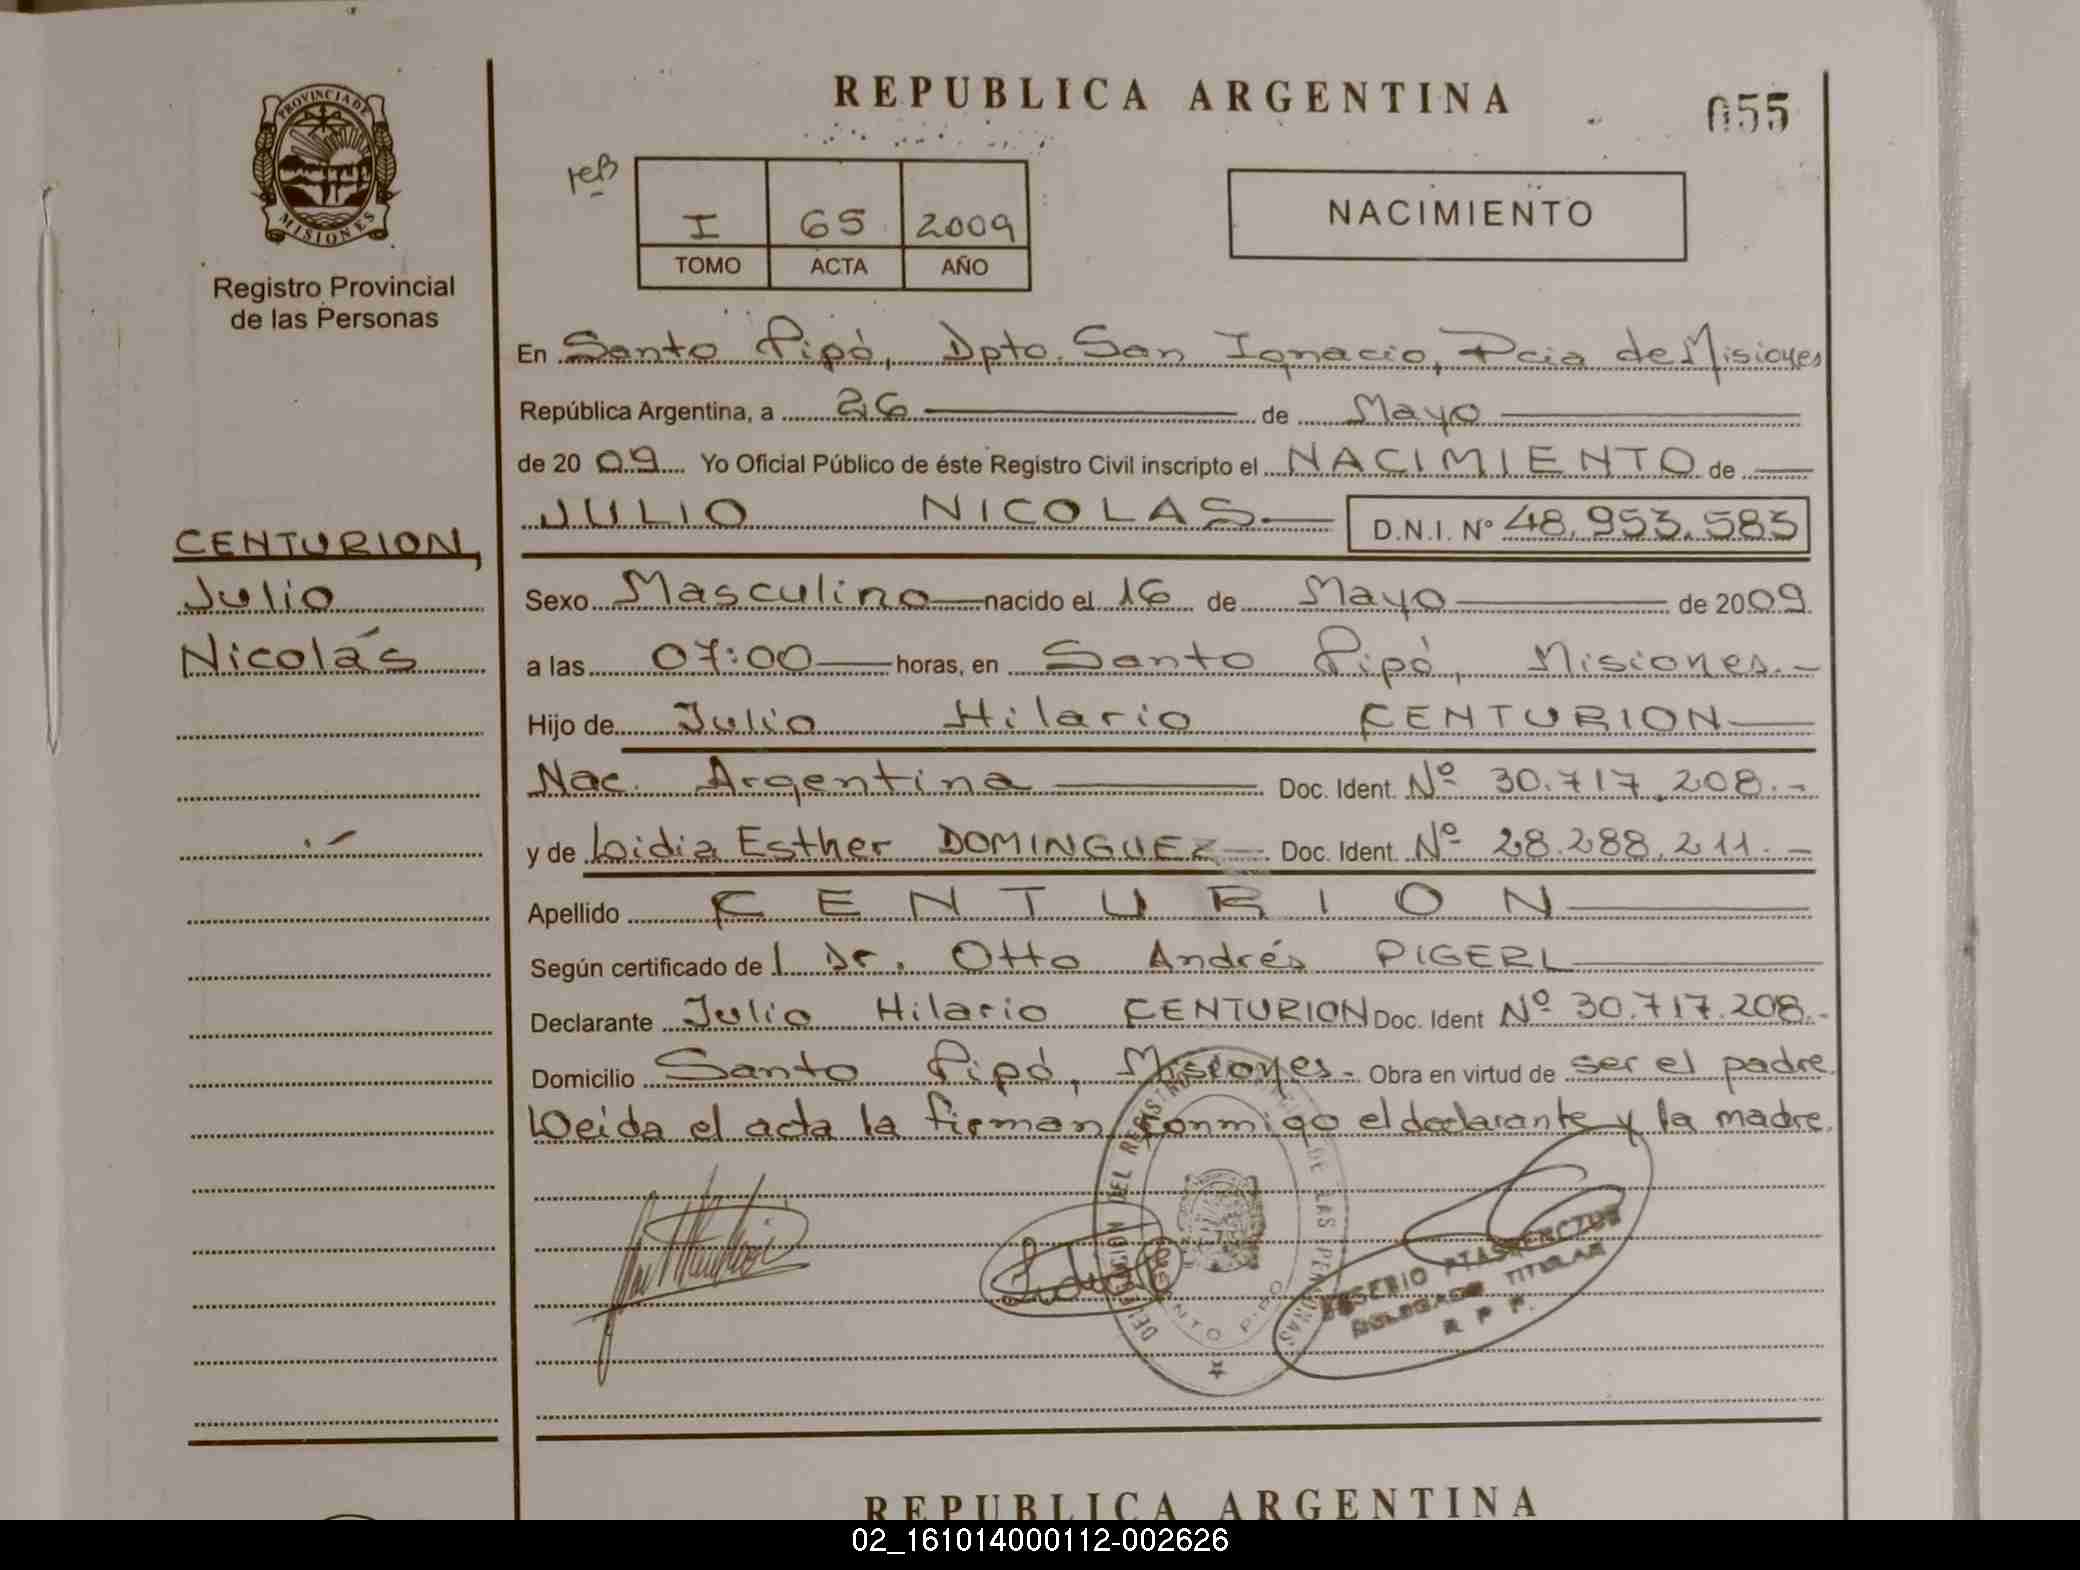 REPUBLICA ARGENTINA
055
PROVINCIA DE
MISIONES
Registro Provincial
de las Personas
I 65 2009
TOMO ACTA AÑO
NACIMIENTO
En Santo Pipó, Dpto. San Ignacio, Pcia de Misiones
República Argentina, a 26 de Mayo
de 2009 Yo Oficial Público de éste Registro Civil inscripto el NACIMIENTO de
JULIO NICOLAS D.N.I. Nº 48.953.583
CENTURION,
Julio
Nicolás
Sexo Masculino nacido el 16 de Mayo de 2009
a las 07:00 horas, en Santo Pipó, Misiones.-
Hijo de Julio Hilario CENTURION
Nac. Argentina Doc. Ident. Nº 30.717.208.-
y de Lidia Esther DOMINGUEZ Doc. Ident. Nº 28.288.211.-
Apellido CENTURION
Según certificado del Dr. Otto Andrés PIGERL
Declarante Julio Hilario CENTURION Doc. Ident Nº 30.717.208.-
Domicilio Santo Pipó, Misiones.- Obra en virtud de ser el padre.
Leida el acta la firman conmigo el declarante y la madre.
DELEGADO TITULAR
R P P.
REPUBLICA ARGENTINA
02_161014000112-002626